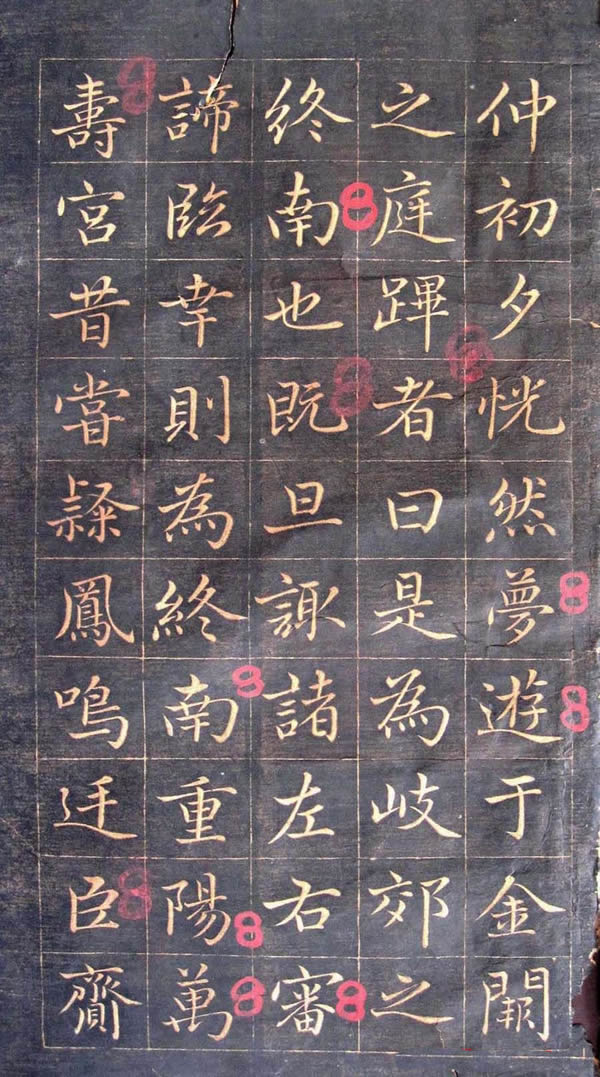 仲初夕恍然夢遊于金闕
之庭蹕者曰是為岐郊之
終南也既旦諏諸左右審
諦臨幸則為終南重陽萬
壽宮昔甞隸鳳鳴廷臣齎